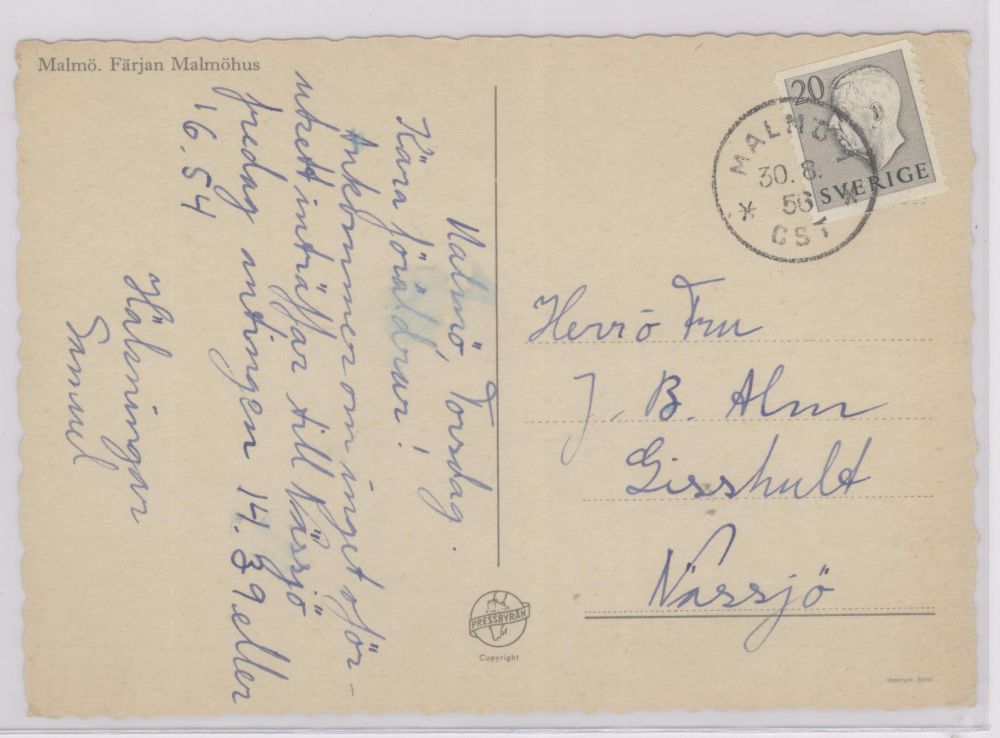 Malmö. Färjan Malmöhus
Malmö, Torsdag.
Kära föräldrar!
Ankommer om inget oför-
utsett inträffar till Nässjö
fredag antingen 14.39 eller
16.54
Hälsningar
20
SVERIGE
MALMÖ
30.8.
56
* CST *
Herr o Fru
J. B. Alm
Gisshult
Nässjö
PRESSBYRÅN
Copyright